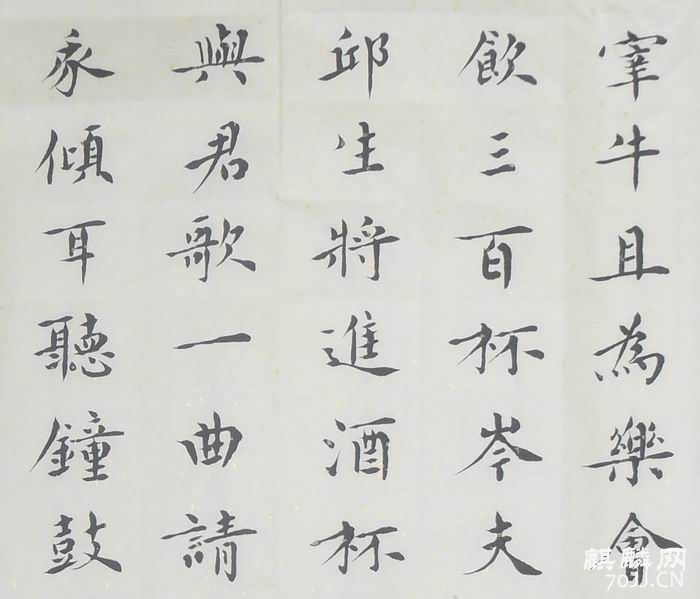 宰牛且為樂會
飲三百杯岑夫
邱生將進酒杯
與君歌一曲請
我傾耳聽鐘鼓
麒麟网
70JJ.CN